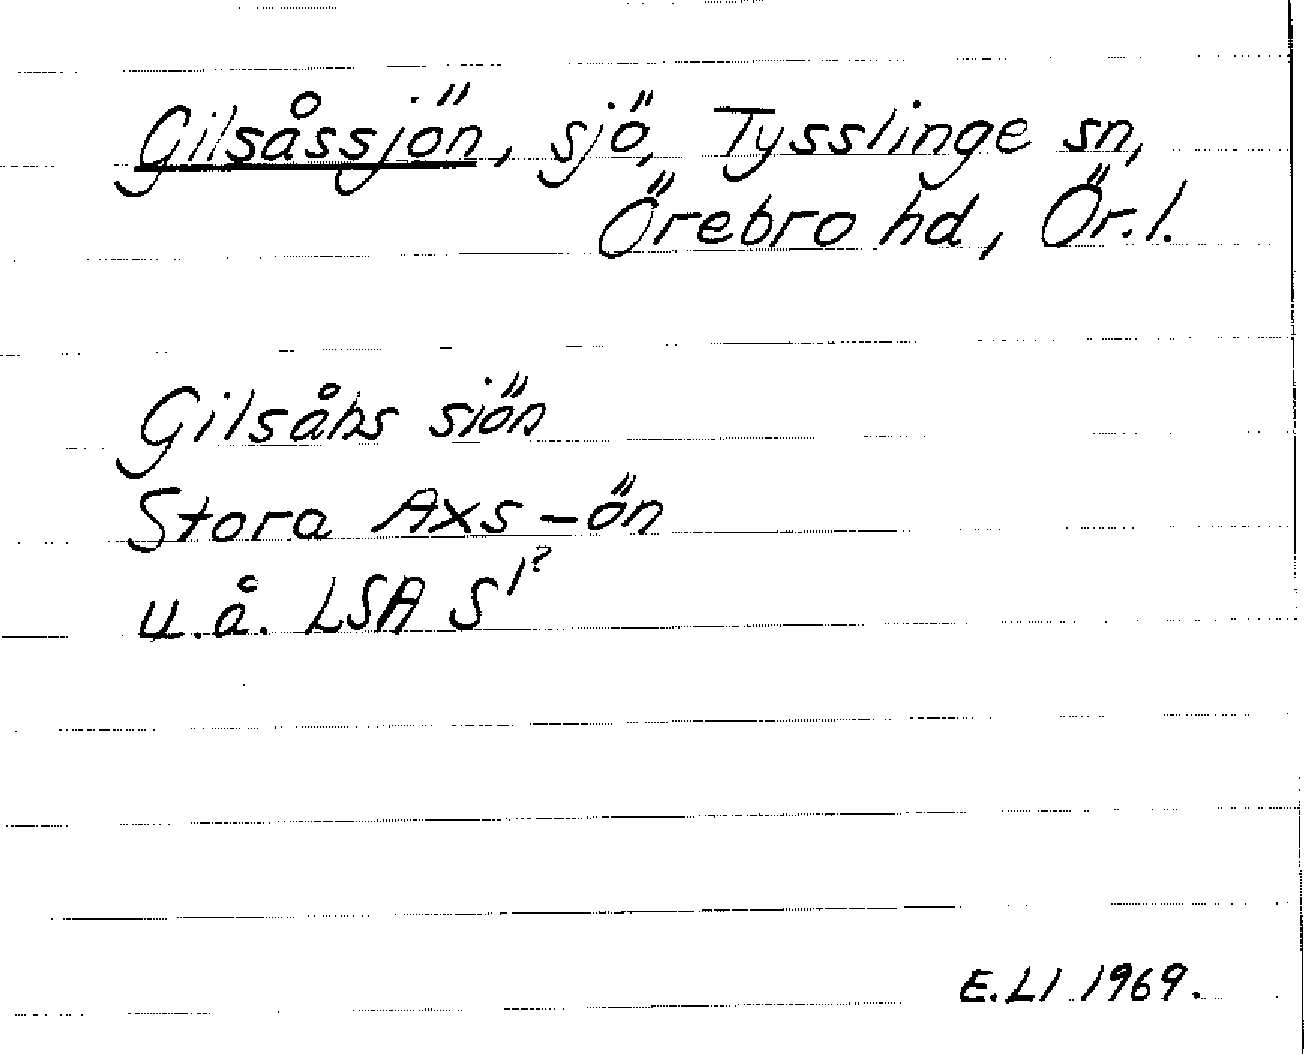 Gilsåssjön, sjö, Tysslinge sn,
Örebro hd, Ör.l.
Gilsåhs siön
Stora Axs-ön
u.å. LSA S1?
E.LI 1969.